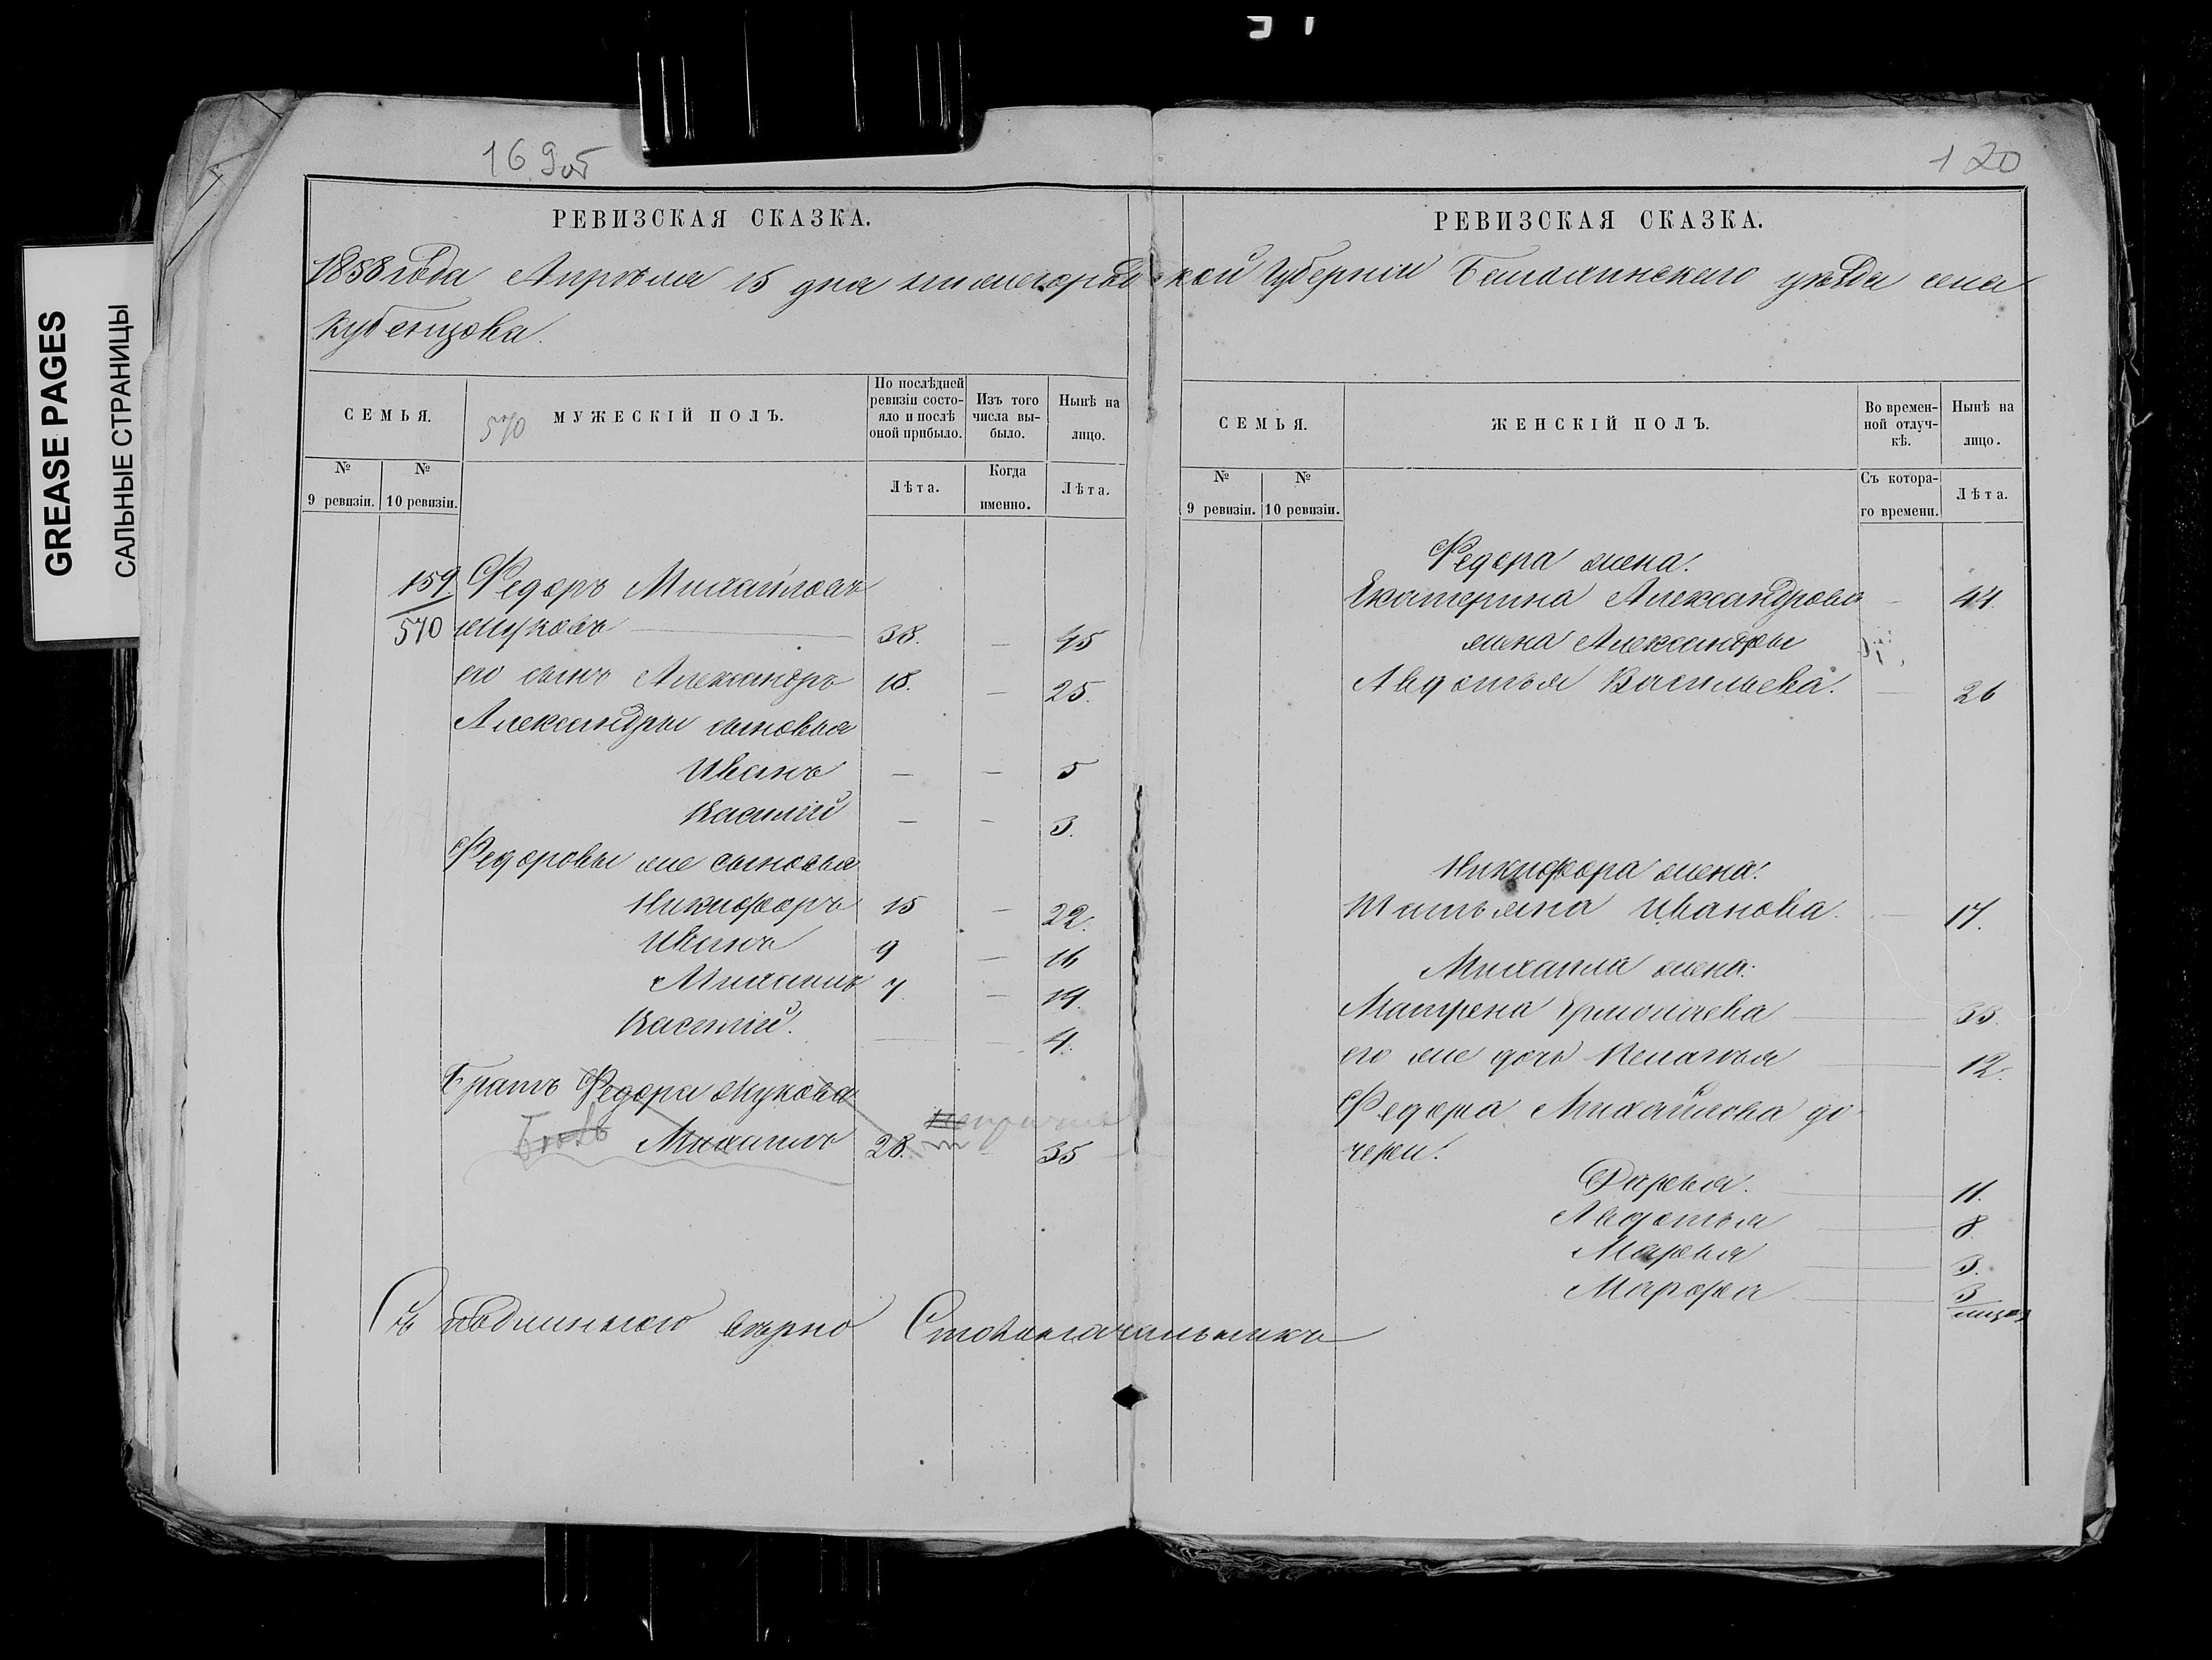 GREASE PAGES
САЛЬНЫЕ СТРАНИЦЫ
169об
120
РЕВИЗСКАЯ СКАЗКА.
РЕВИЗСКАЯ СКАЗКА.
1858 года Апрѣля 15 дня Нижегородской Губерніи Балахнинскаго уѣзда села
Кубенцова.
СЕМЬЯ.
570 МУЖЕСКІЙ ПОЛЪ.
По послѣдней ревизіи состояло и послѣ оной прибыло.
Изъ того числа выбыло.
Нынѣ на лицо.
№ 9 ревизіи.
№ 10 ревизіи.
Лѣта.
Когда именно.
Лѣта.
159. Федоръ Михайловъ
570 Жуковъ — 38. — 45
его сынъ Александръ 18. — 25.
Александры сыновья
Иванъ — — 5
Василій — — 3.
Федоровы же сыновья
Никифоръ 15 — 22.
Иванъ 9 — 16
Михаилъ 7. — 14.
Василій. — — 4.
Братъ Федора Жукова
Михаилъ 28. — 35
Съ подлиннымъ вѣрно Столоначальникъ
СЕМЬЯ.
ЖЕНСКІЙ ПОЛЪ.
Во временной отлучкѣ.
Нынѣ на лицо.
№ 9 ревизіи.
№ 10 ревизіи.
Съ котораго времени.
Лѣта.
Федора жена.
Екатерина Александрова — 44.
жена Александры
Авдотья Васильева. — 26
Никифора жена.
Татьяна Иванова. — 17.
Михаила жена.
Матрена Ермолаева — 35.
его же дочь Пелагея — 12.
Федора Михайлова до-
чери.
Дарья. — 11.
Авдотья — 8.
Марья — 3.
Марфа — 3